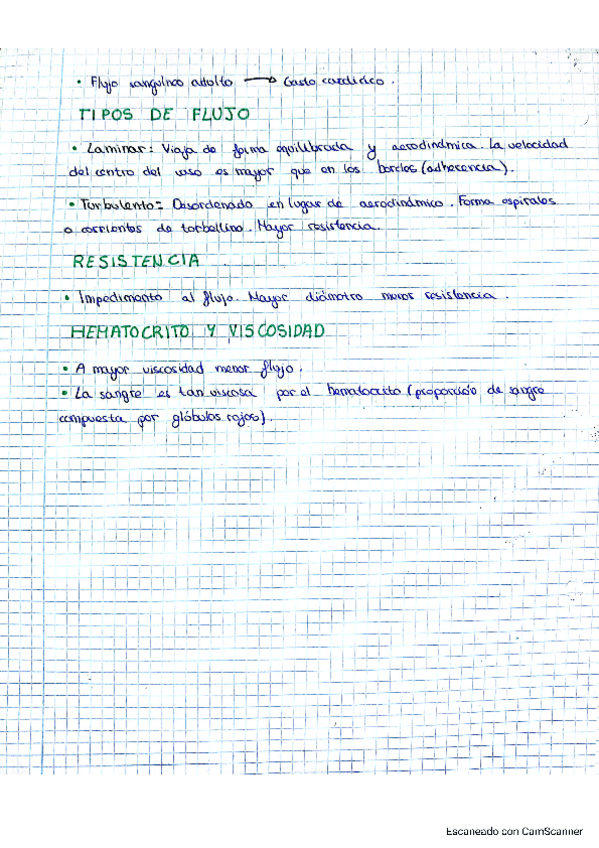 • Flujo sanguíneo adulto → Gasto cardíaco.
TIPOS DE FLUJO
• Laminar: Viaja de forma equilibrada y aerodinámica. La velocidad
del centro del vaso es mayor que en los bordes (adherencia).
• Turbulento: Desordenado en lugar de aerodinámico. Forma espirales
o corrientes de torbellino. Mayor resistencia.
RESISTENCIA
• Impedimento al flujo. Mayor diámetro menor resistencia.
HEMATOCRITO Y VISCOSIDAD
• A mayor viscosidad menor flujo.
• La sangre es tan viscosa por el hematocrito (proporción de sangre
compuesta por glóbulos rojos).
Escaneado con CamScanner